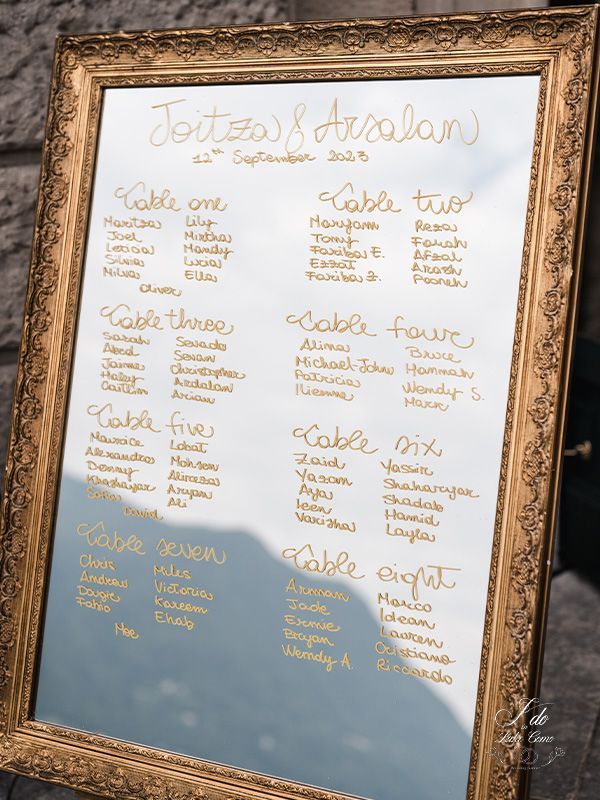 Joitza & Arsalan
12th September 2023
Table one
Maritza Lily
Joel Mirtha
Leticia Mandy
Silvia Lucia
Milva Ella
Oliver
Table two
Maryam Reza
Tony Farah
Fariba E. Afzal
Ezzat Arash
Fariba Z. Pooneh
Table three
Sarah Sevada
Abed Sevan
Jaime Christopher
Haley Ardalan
Caitlin Arian
Table four
Alina Bruce
Michael-John Hannah
Patricia Wendy S.
Ilienne Mark
Table five
Maurice Lobat
Alexandra Mohsen
Denny Alireza
Khashayar Aryan
Sofia Ali
David
Table six
Zaid Yassir
Yazan Shaharyar
Aya Shadab
Leen Hamid
Varisha Layla
Table seven
Chris Miles
Andrew Victoria
Dougie Kareem
Fabio Ehab
Moe
Table eight
Arman Marco
Jade Idean
Ernie Lauren
Bryan Cristiano
Wendy A. Riccardo
I do
in
Lake Como